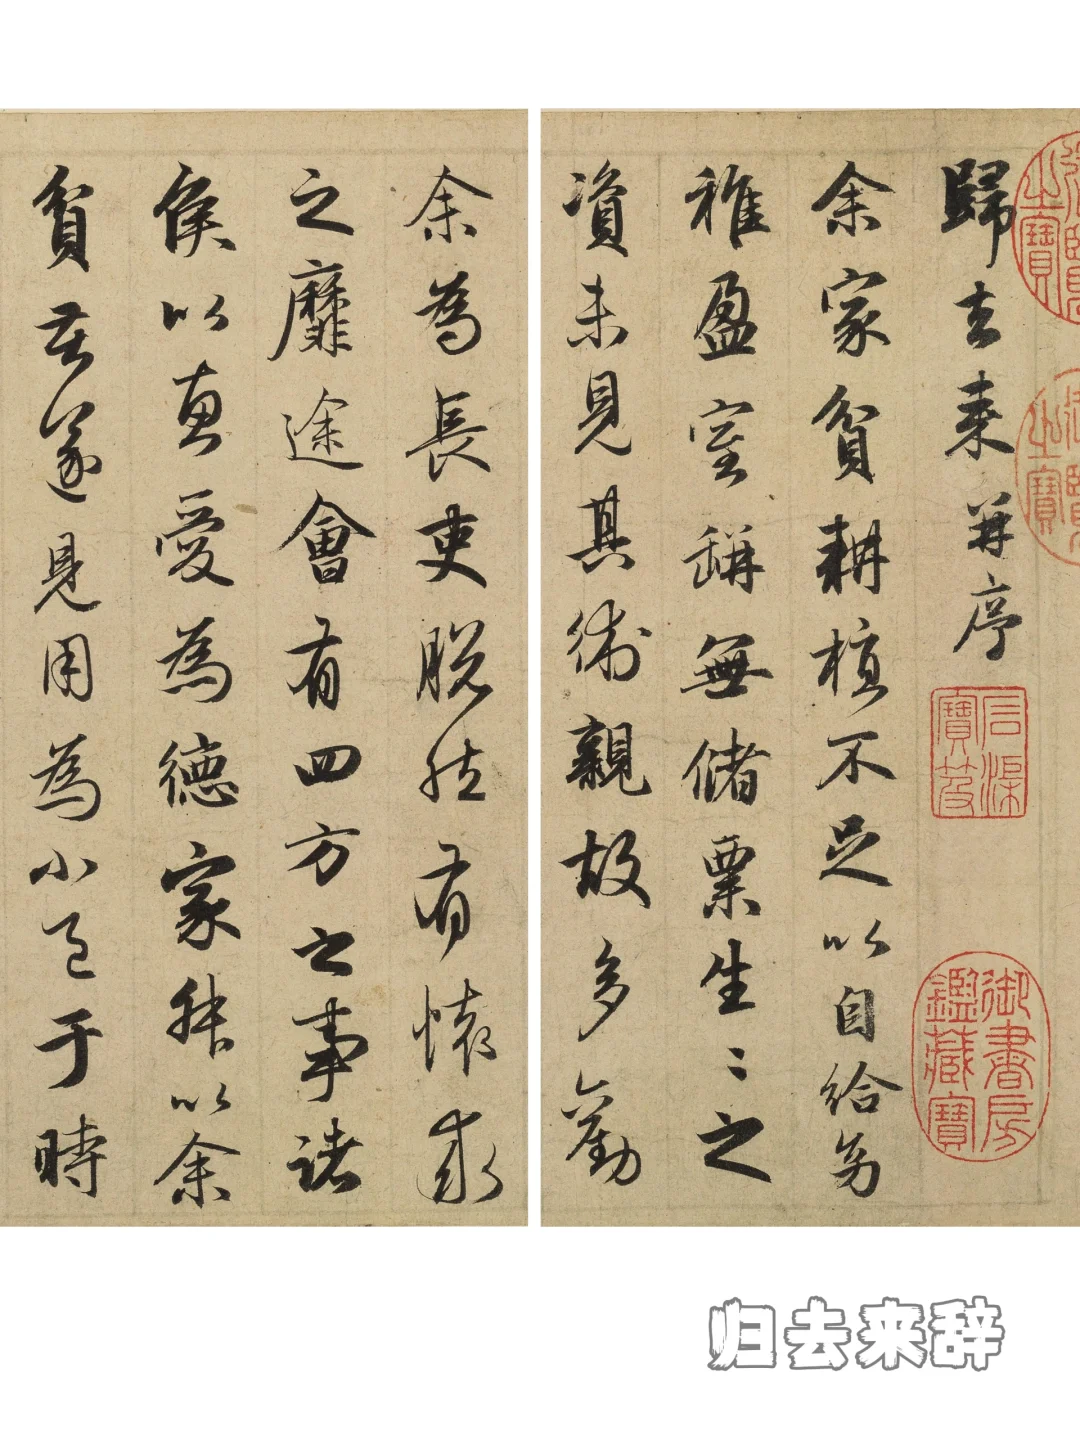 歸去来并序
余家貧耕植不足以自給幼
稚盈室缾無儲粟生〻之
資未見其術親故多勸
余為長吏脫然有懷求
之靡途會有四方之事諸
侯以惠愛為德家叔以余
貧苦遂見用為小邑于時
之寶
之寶
石渠寶笈
御書房鑑藏寶
归去来辞